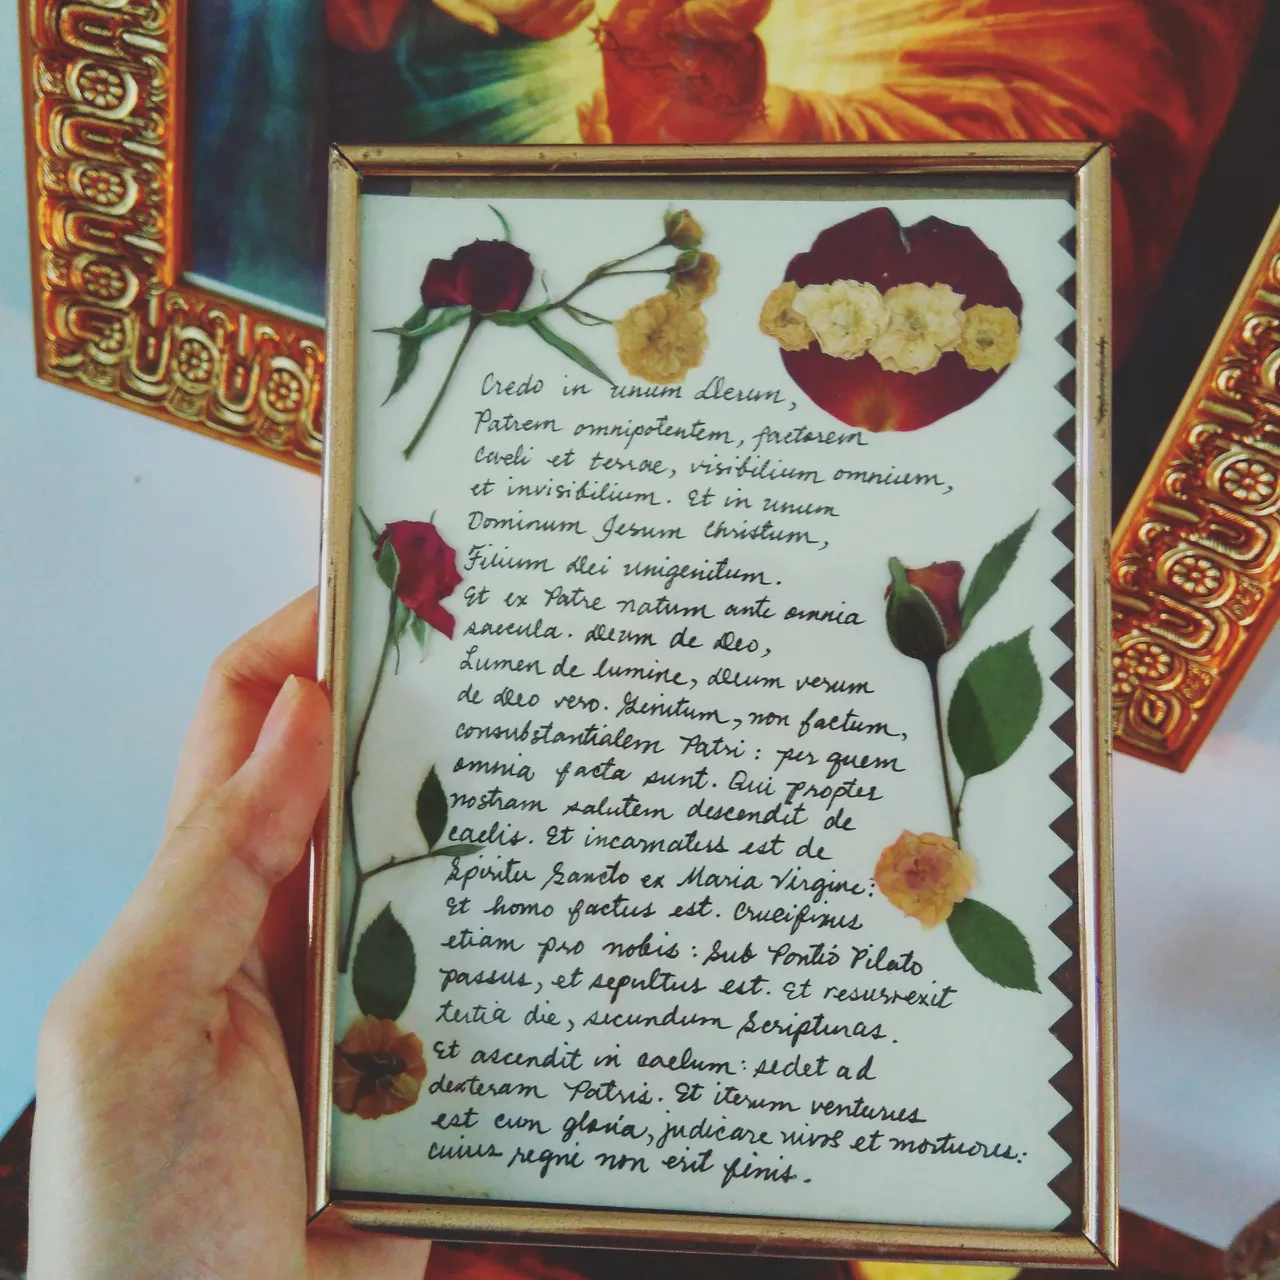 Credo in unum Deum,
Patrem omnipotentem, factorem
Caeli et terrae, visibilium omnium,
et invisibilium. Et in unum
Dominum Jesum Christum,
Filium Dei unigenitum.
Et ex Patre natum ante omnia
saecula. Deum de Deo,
Lumen de lumine, Deum verum
de Deo vero. Genitum, non factum,
consubstantialem Patri: per quem
omnia facta sunt. Qui propter
nostram salutem descendit de
caelis. Et incarnatus est de
Spiritu Sancto ex Maria Virgine:
Et homo factus est. Crucifixus
etiam pro nobis: Sub Pontio Pilato
passus, et sepultus est. Et resurrexit
tertia die, secundum Scripturas.
Et ascendit in caelum: sedet ad
dexteram Patris. Et iterum venturus
est cum gloria, judicare vivos et mortuous:
cuius regni non erit finis.